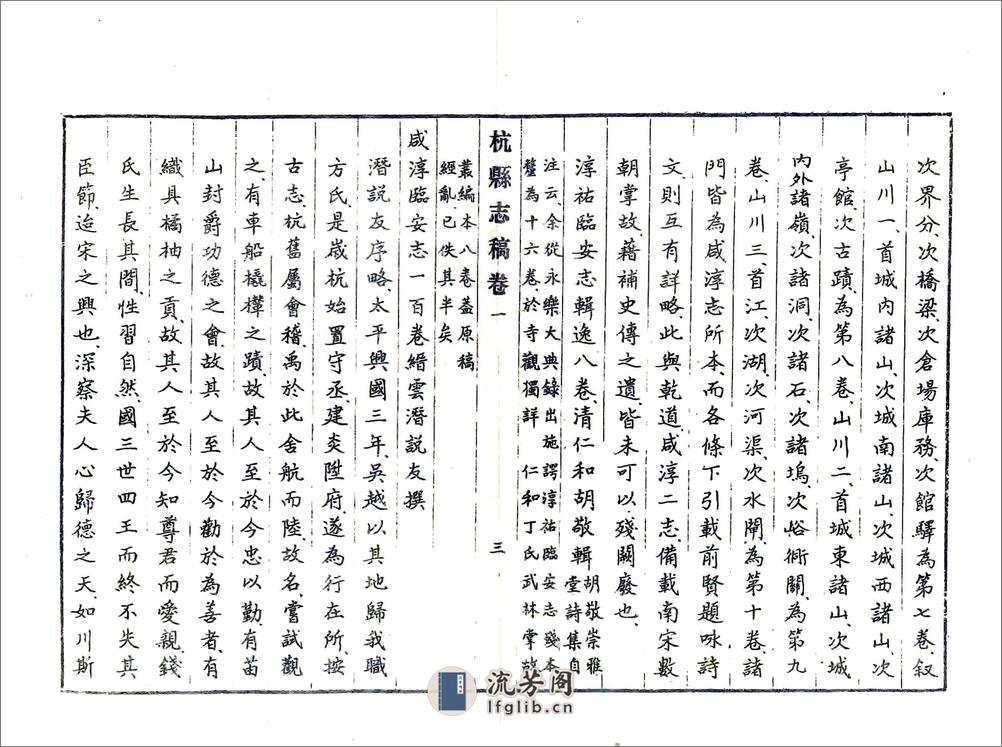 次界分、次橋梁、次倉場庫務、次館驛為第七卷、叙
山川一、首城内諸山、次城南諸山、次城西諸山、次
亭館、次古蹟、為第八卷、山川二、首城東諸山、次城
内外諸嶺、次諸洞、次諸石、次諸塢、次峪衖關、為第九
卷、山川三、首江、次湖、次河渠、次水閘、為第十卷、諸
門皆為咸淳志所本、而各條下引載前賢題咏詩
文則互有詳略、此與乾道、咸淳二志、備載南宋數
朝掌故、藉補史傳之遺、皆未可以殘闕廢也、
淳祐臨安志輯逸八卷、清仁和胡敬輯 胡敬崇雅
堂詩集自
注云、余從永樂大典錄出施諤淳祐臨安志殘本
釐為十六卷、於寺觀獨詳 仁和丁氏武林掌故
杭縣志稿卷一 三
叢編本八卷蓋原稿
經亂、已佚其半矣
咸淳臨安志一百卷縉雲潛説友撰
潛説友序略、太平興國三年、吳越以其地歸我職
方氏、是歲杭始置守丞、建炎陞府、遂為行在所、按
古志、杭舊屬會稽、禹於此舍航而陸、故名、嘗試觀
之、有車船橇樏之蹟、故其人至於今忠以勤、有苗
山封爵功德之會、故其人至於今勸於為善者、有
織具橘柚之貢、故其人至於今知尊君而愛親、錢
氏生長其間、性習自然、國三世四王而終不失其
臣節、迨宋之興也、深察夫人心歸德之天、如川斯
流芳阁
lfglib.cn